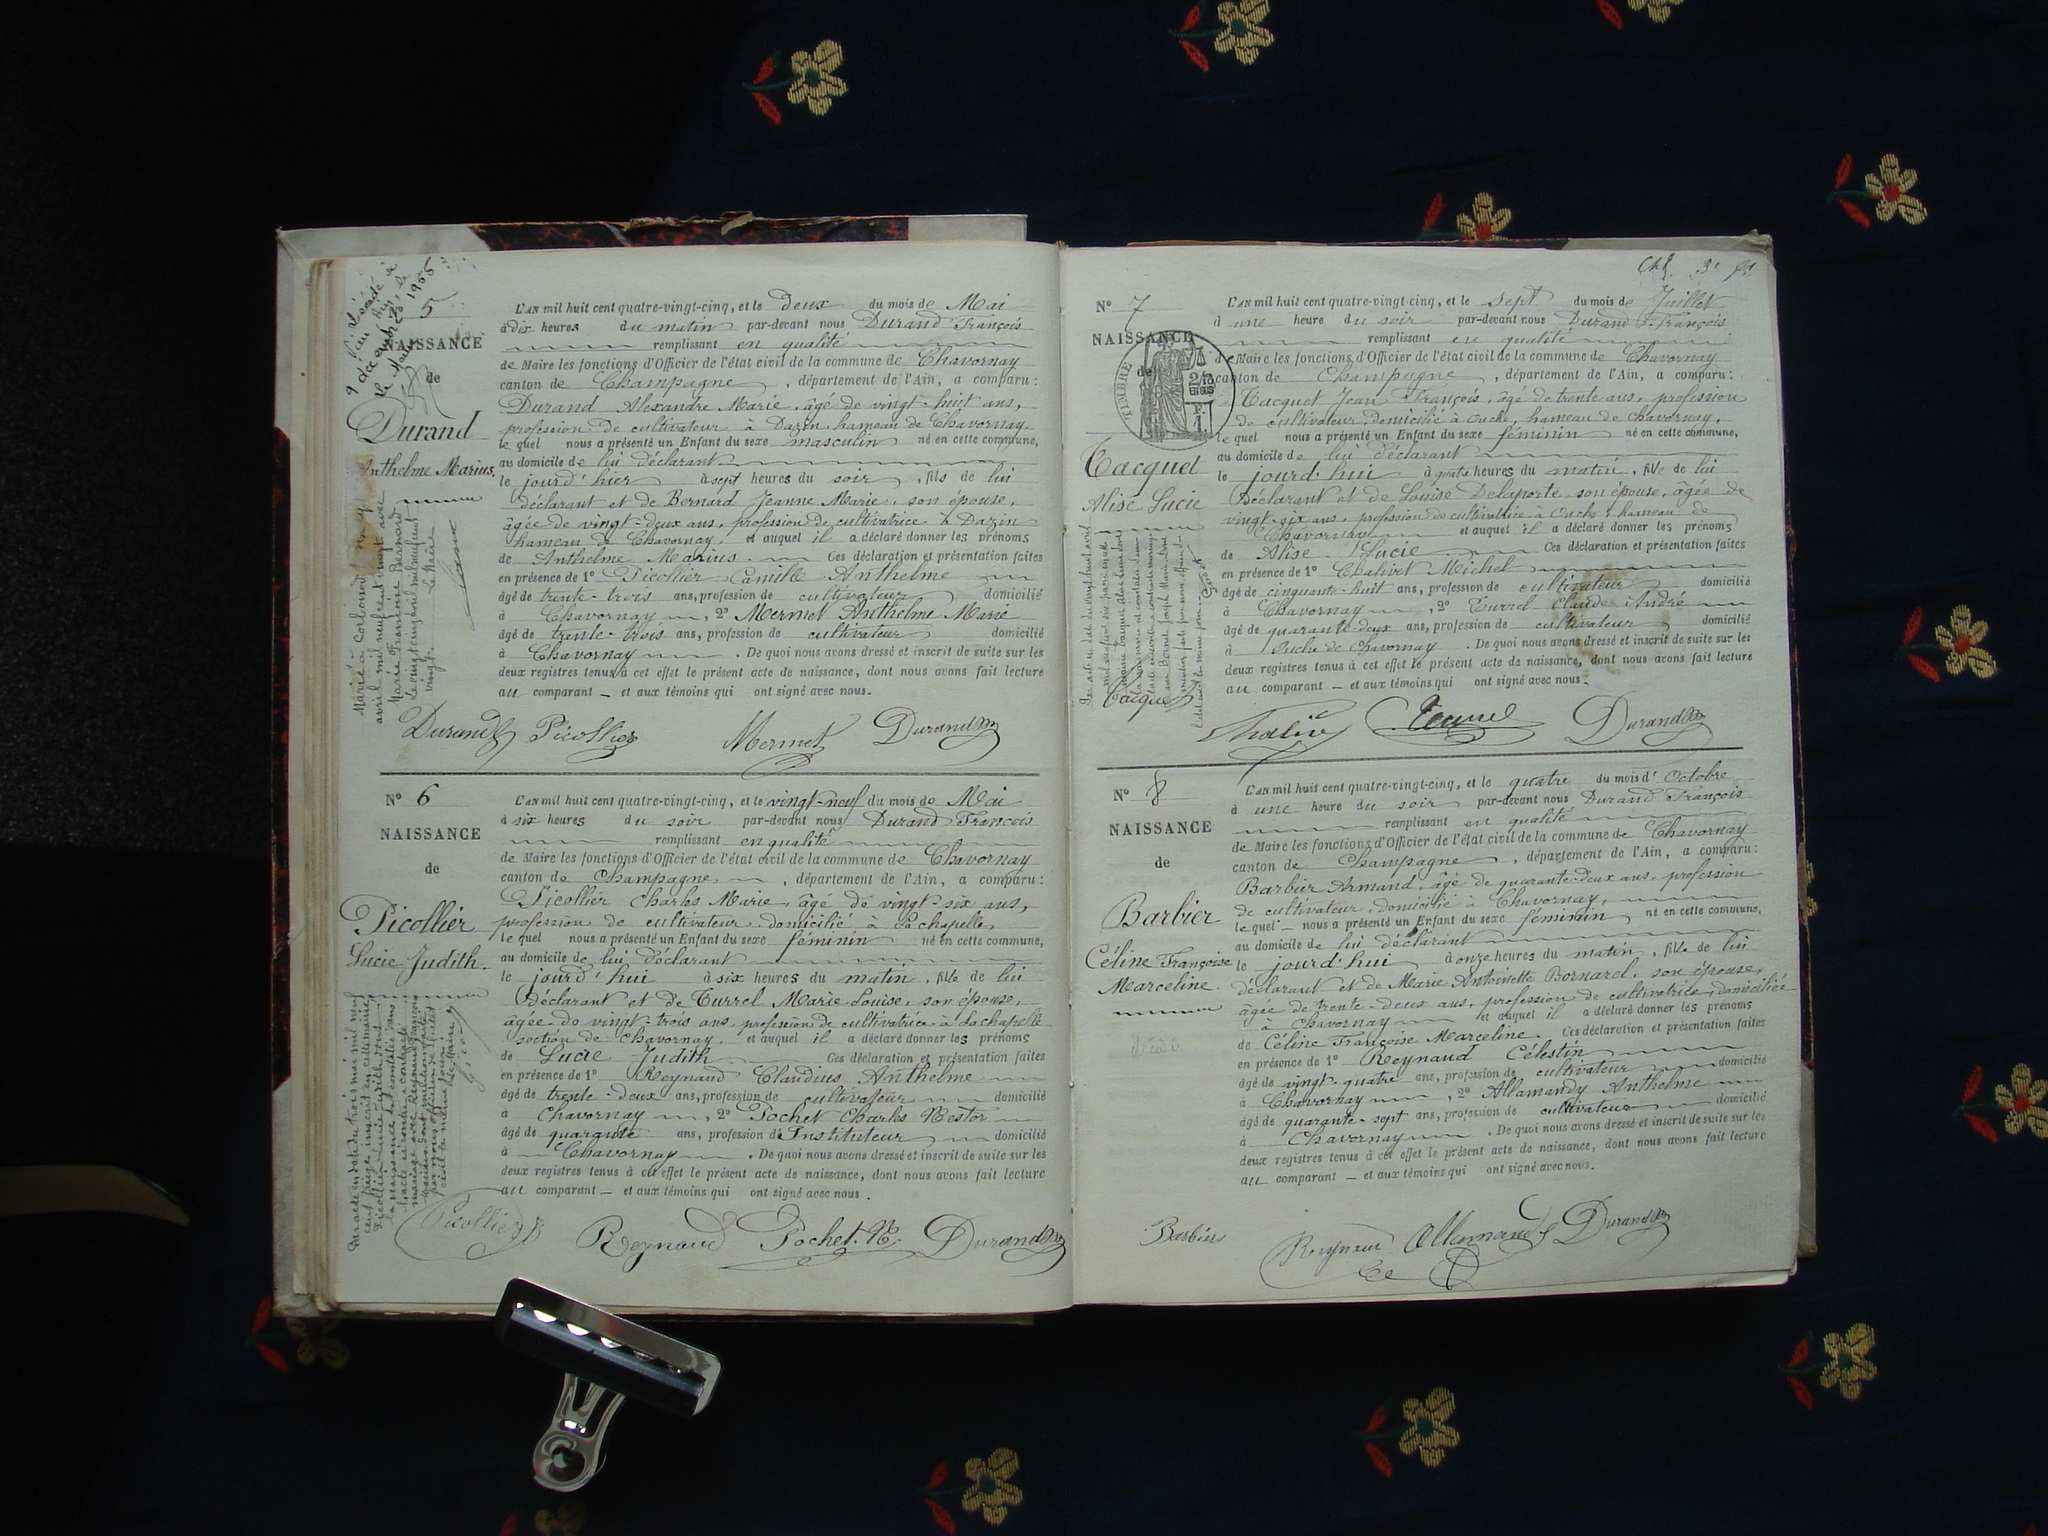 N° 5
NAISSANCE
de
Durand
Anthelme Marius
L'AN mil huit cent quatre-vingt-cinq, et le deux du mois de Mai
à dix heures du matin par-devant nous Durand François
remplissant en qualité
de Maire les fonctions d'Officier de l'état civil de la commune de Chavornay
canton de Champagne, département de l'Ain, a comparu:
Durand Alexandre Marie, âgé de vingt-huit ans,
profession de cultivateur à Dazin hameau de Chavornay
le quel nous a présenté un Enfant du sexe masculin né en cette commune,
au domicile de lui déclarant
le jourd'hier à sept heures du soir, fils de lui
déclarant et de Bernard Jeanne Marie, son épouse,
âgée de vingt-deux ans, profession de cultivatrice à Dazin
hameau de Chavornay, et auquel il a déclaré donner les prénoms
de Anthelme Marius. Ces déclaration et présentation faites
en présence de 1° Picollier Camille Anthelme
âgé de trente-trois ans, profession de cultivateur domicilié
à Chavornay, 2° Mermet Anthelme Marie
âgé de trente-trois ans, profession de cultivateur domicilié
à Chavornay. De quoi nous avons dressé et inscrit de suite sur les
deux registres tenus à cet effet le présent acte de naissance, dont nous avons fait lecture
au comparant – et aux témoins qui ont signé avec nous.
Durand Picollier Mermet Durand
N° 6
NAISSANCE
de
Picollier
Lucie Judith.
L'AN mil huit cent quatre-vingt-cinq, et le vingt-neuf du mois de Mai
à six heures du soir par-devant nous Durand François
remplissant en qualité
de Maire les fonctions d'Officier de l'état civil de la commune de Chavornay
canton de Champagne, département de l'Ain, a comparu:
Picollier Charles Marie, âgé de vingt-six ans,
profession de cultivateur domicilié à Lachapelle,
le quel nous a présenté un Enfant du sexe féminin né en cette commune,
au domicile de lui déclarant
le jourd'hui à six heures du matin, fille de lui
déclarant et de Turrel Marie Louise, son épouse,
âgée de vingt-trois ans, profession de cultivatrice à Lachapelle
section de Chavornay, et auquel il a déclaré donner les prénoms
de Lucie Judith Ces déclaration et présentation faites
en présence de 1° Reynaud Claudius Anthelme
âgé de trente-deux ans, profession de cultivateur domicilié
à Chavornay, 2° Pochet Charles Nestor
âgé de quarante ans, profession d'Instituteur domicilié
à Chavornay. De quoi nous avons dressé et inscrit de suite sur les
deux registres tenus à cet effet le présent acte de naissance, dont nous avons fait lecture
au comparant – et aux témoins qui ont signé avec nous.
Picollier Reynaud Pochet. N. Durand
N° 7
NAISSANCE
de
TIMBRE
Tacquet
Alise Lucie
L'AN mil huit cent quatre-vingt-cinq, et le sept du mois de Juillet
à une heure du soir par-devant nous Durand François
remplissant en qualité
de Maire les fonctions d'Officier de l'état civil de la commune de Chavornay
canton de Champagne, département de l'Ain, a comparu:
Tacquet Jean François, âgé de trente ans, profession
de cultivateur, domicilié à Ouche, hameau de Chavornay,
le quel nous a présenté un Enfant du sexe féminin né en cette commune,
au domicile de lui déclarant
le jourd'hui à quatre heures du matin, fille de lui
déclarant et de Louise Delaporte, son épouse, âgée de
vingt-six ans, profession de cultivatrice à Ouche, hameau de
Chavornay et auquel il a déclaré donner les prénoms
de Alise Lucie Ces déclaration et présentation faites
en présence de 1° Chativet Michel
âgé de cinquante-huit ans, profession de cultivateur domicilié
à Chavornay, 2° Turrel Claude André
âgé de quarante-deux ans, profession de cultivateur domicilié
à Ouche de Chavornay. De quoi nous avons dressé et inscrit de suite sur les
deux registres tenus à cet effet le présent acte de naissance, dont nous avons fait lecture
au comparant – et aux témoins qui ont signé avec nous.
Tacquet Durand
N° 8
NAISSANCE
de
Barbier
Céline Françoise
Marceline.
L'AN mil huit cent quatre-vingt-cinq, et le quatre du mois d'Octobre
à une heure du soir par-devant nous Durand François
remplissant en qualité
de Maire les fonctions d'Officier de l'état civil de la commune de Chavornay
canton de Champagne, département de l'Ain, a comparu:
Barbier Armand, âgé de quarante-deux ans, profession
de cultivateur, domicilié à Chavornay,
le quel – nous a présenté un Enfant du sexe féminin né en cette commune,
au domicile de lui déclarant
le jourd'hui à onze heures du matin, fille de lui
déclarant et de Marie Antoinette Bornard, son épouse,
âgée de trente-deux ans, profession de cultivatrice, domiciliée
à Chavornay et auquel il a déclaré donner les prénoms
de Céline Françoise Marceline. Ces déclaration et présentation faites
en présence de 1° Reynaud Célestin
âgé de vingt-quatre ans, profession de cultivateur domicilié
à Chavornay, 2° Allamandy Anthelme
âgé de quarante-sept ans, profession de cultivateur domicilié
à Chavornay. De quoi nous avons dressé et inscrit de suite sur les
deux registres tenus à cet effet le présent acte de naissance, dont nous avons fait lecture
au comparant – et aux témoins qui ont signé avec nous.
Barbier Reynaud Allamandy Durand